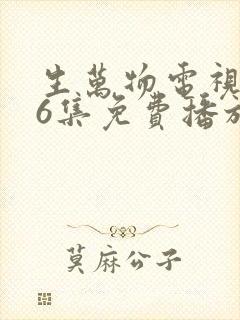 生萬物電視
6集免費播放
莫麻公子